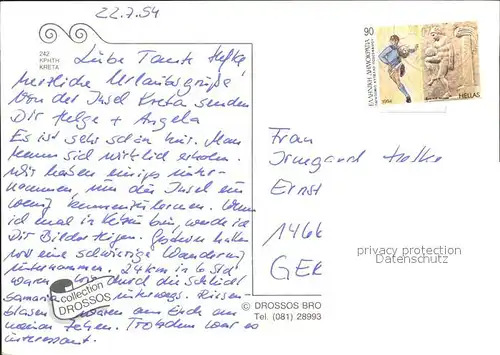 22.7.94
242
ΚΡΗΤΗ
KRETA
Liebe Tante Hefke,
herzliche Urlaubsgrüße
von der Insel Kreta senden
Dir Helga + Angela
Es ist sehr schön hier. Man
kann sich wirklich erholen.
Wir haben einiges unter-
nommen, um die Insel ein
wenig kennenzulernen. Wenn
ich mal in bin, werde ich
Dir Bilder zeigen. Gestern haben
wir eine schwierige Wanderung
unternommen. 24 km in 6 Std
waren wir durch die Schlucht
Samaria unterwegs. Riesen
blasen waren am Ende an
meinen Zehen. Trotzdem war es
interessant.
collection
DROSSOS
90
ΕΛΛΗΝΙΚΗ ΔΗΜΟΚΡΑΤΙΑ
1994
HELLAS
Frau
Irmgard
Ernst
1466
GER
privacy protection
Veil of Data
© DROSSOS BRO
Tel. (081) 28993